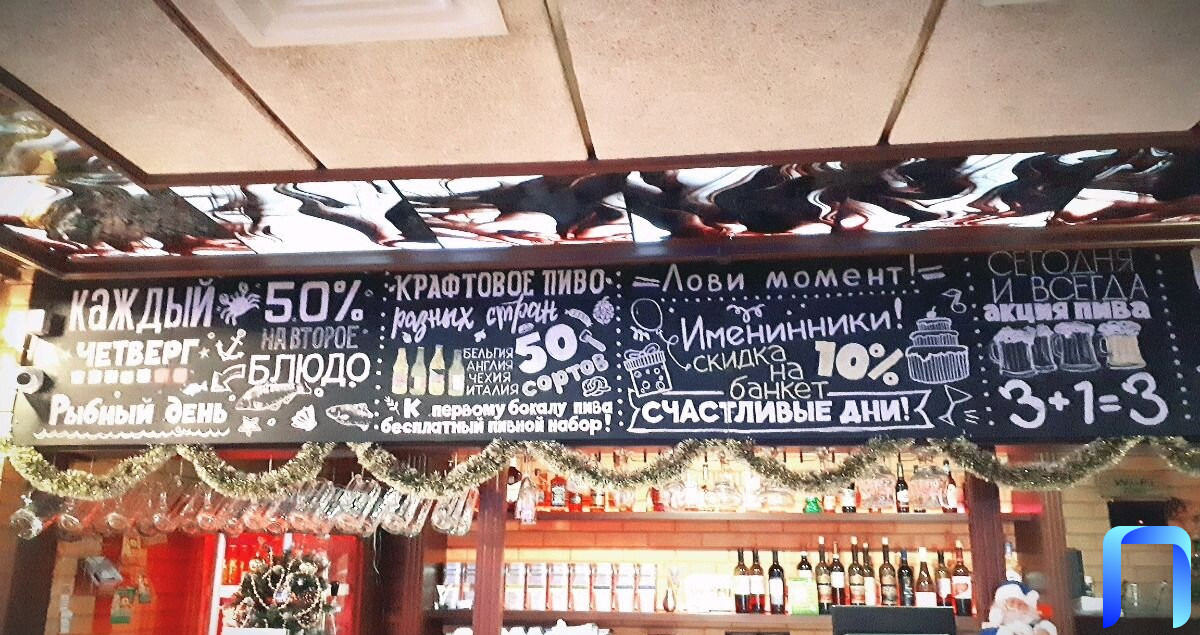 КАЖДЫЙ
ЧЕТВЕРГ
50%
НА ВТОРОЕ
БЛЮДО
Рыбный день
КРАФТОВОЕ ПИВО
разных стран
БЕЛЬГИЯ
АНГЛИЯ
ЧЕХИЯ
ИТАЛИЯ
50
сортов
К первому бокалу пива
бесплатный пивной набор!
Лови момент!
Именинники!
скидка
на
банкет
10%
СЧАСТЛИВЫЕ ДНИ!
СЕГОДНЯ
И ВСЕГДА
акция пива
3+1=3